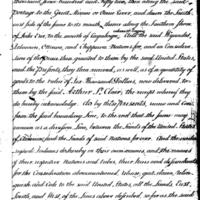 thousand four hundred and fifty two, then along the said
portage to the Great Miami or Ome River, and down the South-
east side of the same to its mouth; thence along the Southern shore
of Lake Erie, to the mouth of Cayahoga And the said Wyandot,
Delaware, Ottawa, and Chippewa Nations, for and in Consideration
of the peace then granted to them by the said United States,
and the presents they then received, as well, as of a quantity of
goods to the value of Six Thousand Dollars, now delivered to
them by the said Arthur St. Clair, the receipt whereof they
do hereby acknowledge, do by these presents, renew and confirm
the said boundary line; to the end that the same may
remain as a division line, between the lands of the United States
of America, and the lands of said Nations, forever. And the under
signed Indians do hereby in their own names, and the names
of their respective Nations and tribes, their heirs and descendants,
for the Consideration abovementioned, release, quit claim, relin-
quish and cede to the said United States, all the lands East,
South and West of the lines above described, so far as the said